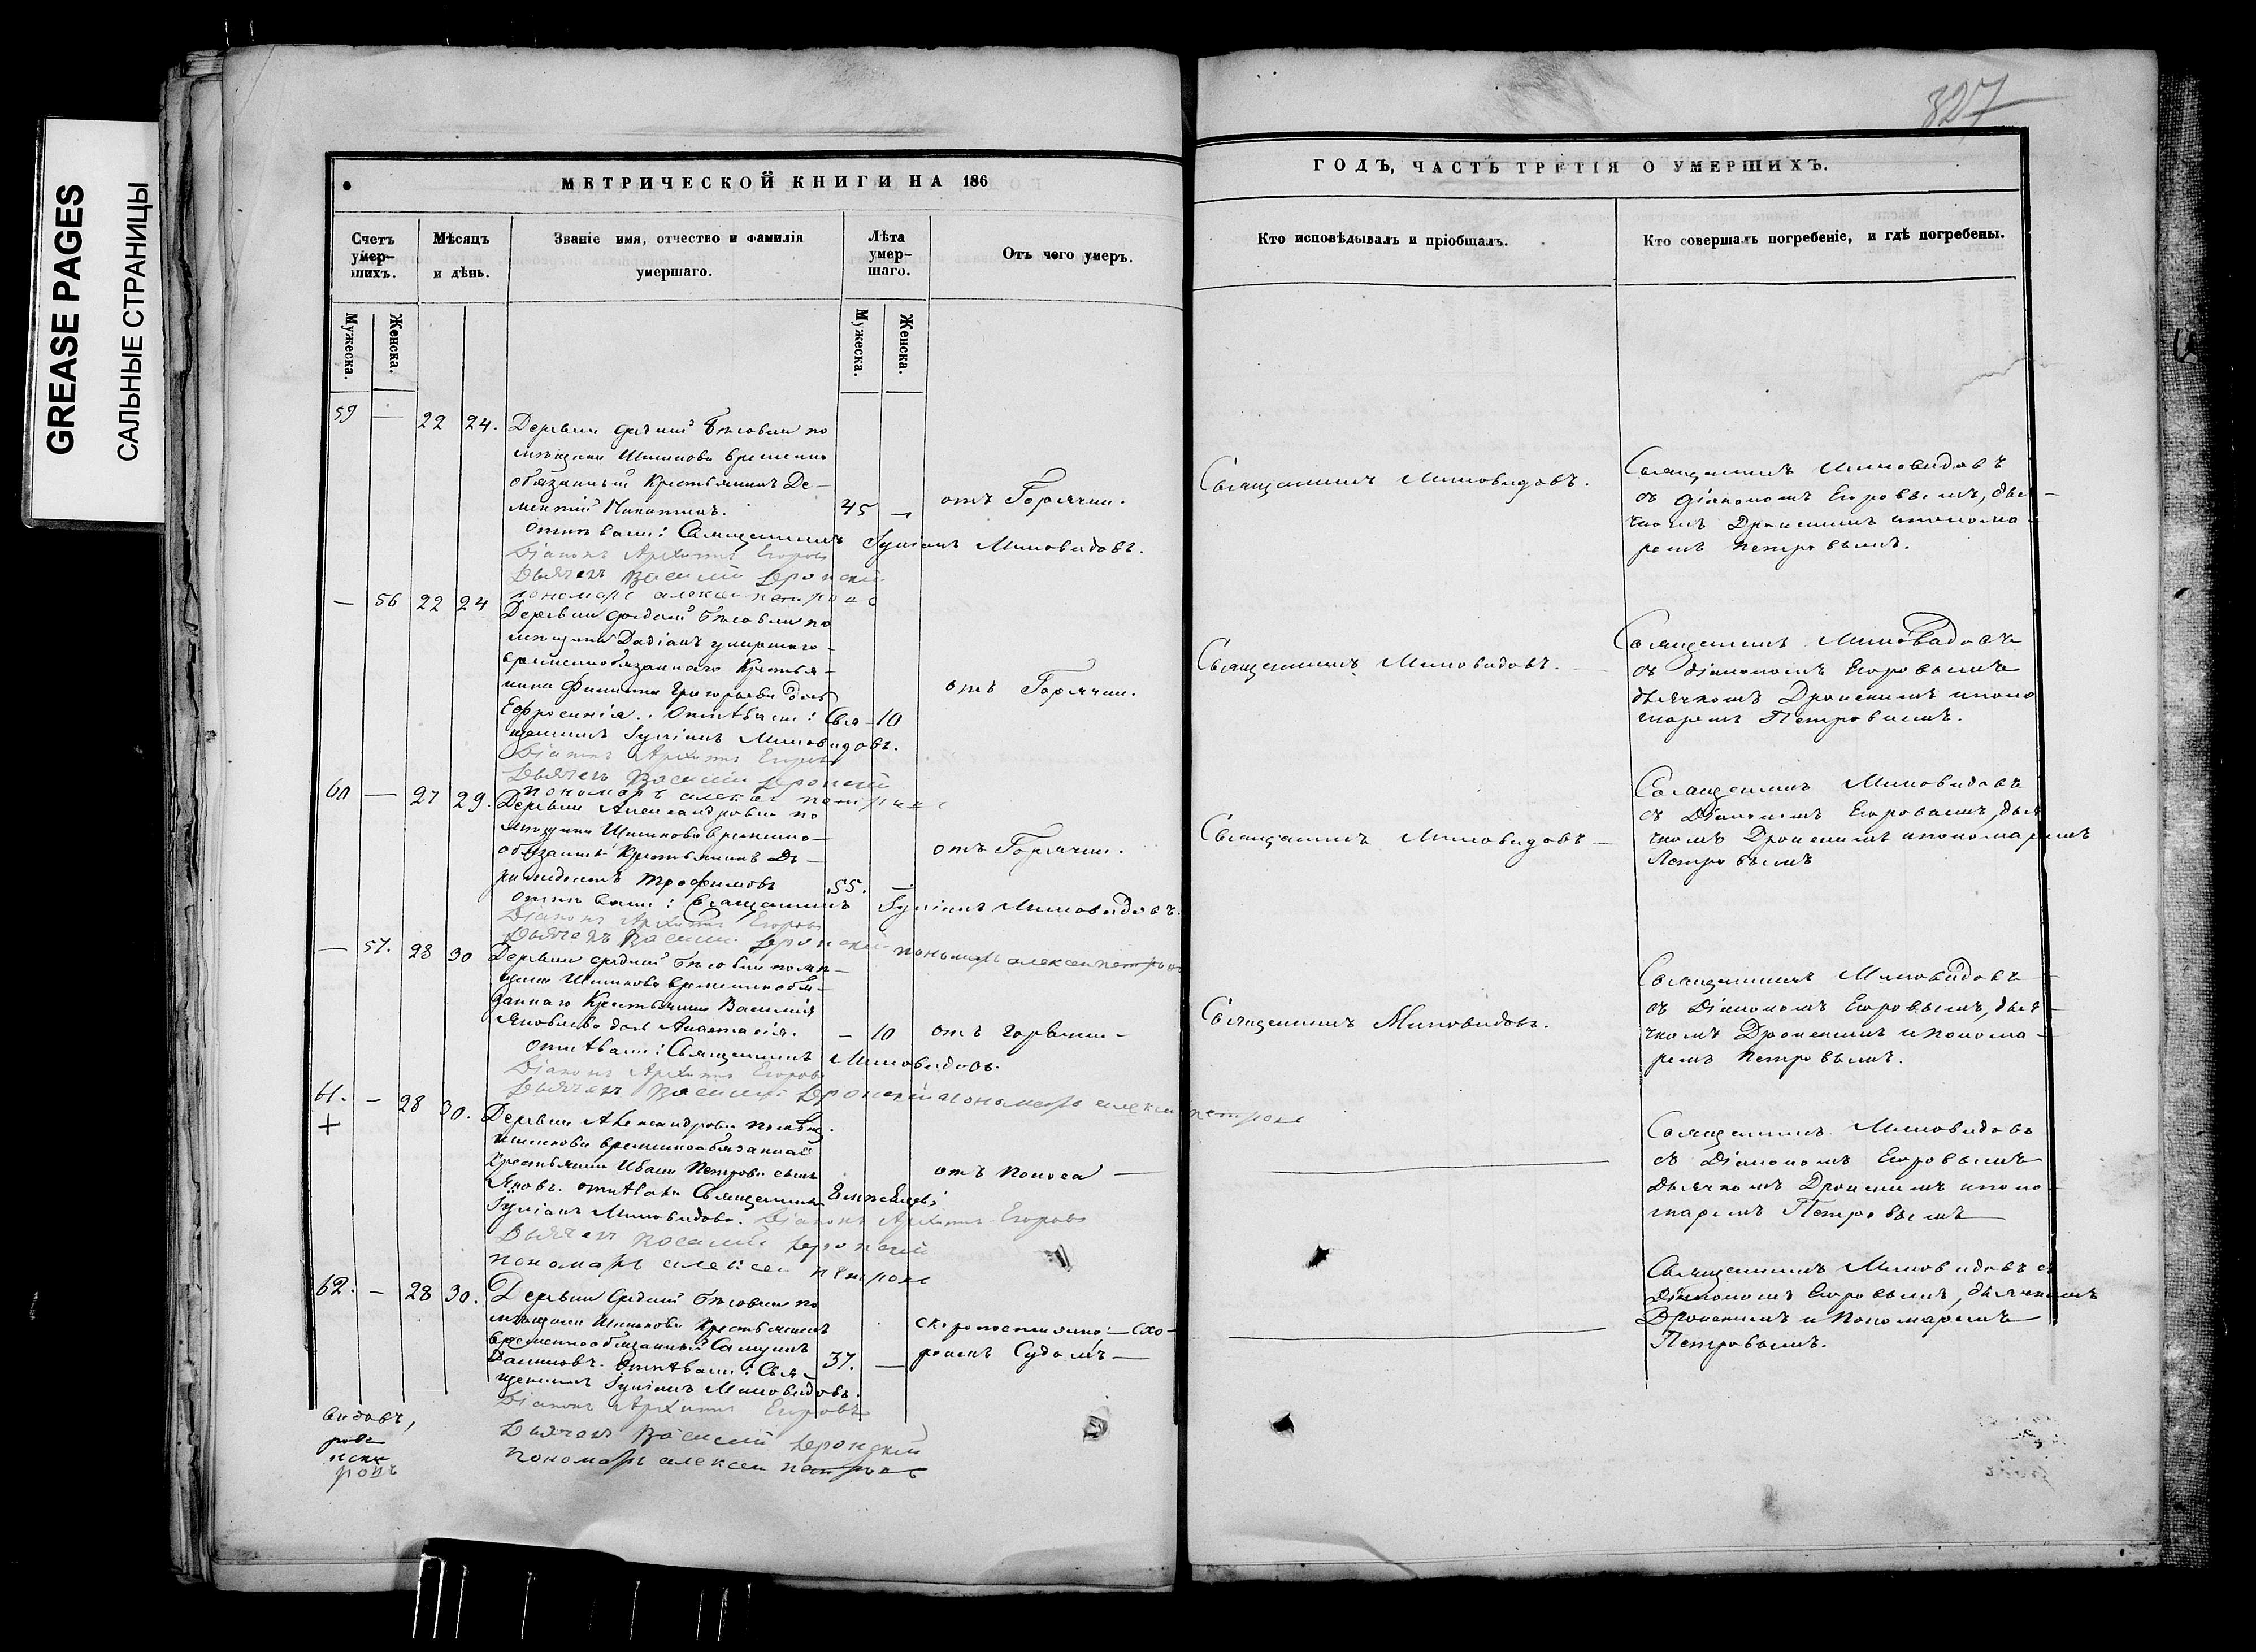 GREASE PAGES
САЛЬНЫЕ СТРАНИЦЫ
327
МЕТРИЧЕСКОЙ КНИГИ НА 186
ГОДЪ, ЧАСТЬ ТРЕТІЯ О УМЕРШИХЪ.
Счетъ умер-шихъ.
Мѣсяцъ и день.
Званіе имя, отчество и фамилія умершаго.
Лѣта умер-шаго.
Отъ чего умеръ.
Кто исповѣдывалъ и пріобщалъ.
Кто совершалъ погребеніе, и гдѣ погребены.
Мужеска.
Женска.
Мужеска.
Женска.
59 — 22 24.
Деревни
мѣщика Шишкова временно
обязанный Крестьянинъ Де-
ментій Никитинъ. 45 —
отъ Горячки.
отпѣвали: Священникъ Іуліанъ Миловидовъ.
Діаконъ Архипъ Егоровъ
Дьячекъ Василій Дронскій
пономарь алексей петровъ
Священникъ Миловидовъ.
Священникъ Миловидовъ
съ діакономъ Егоровымъ, дья-
чкомъ Дронскимъ и понома-
ремъ Петровымъ.
— 56 22 24
Деревни
мѣщика умершаго
временнообязаннаго Крестья-
нина Филиппа Григорьева дочь
Ефросинія. Отпѣвали: Свя- 10
щенникъ Іуліанъ Миловидовъ.
Діаконъ Архипъ Егоровъ
Дьячекъ Василій Дронскій
пономарь алексей петровъ
отъ Горячки.
Священникъ Миловидовъ.
Священникъ Миловидовъ
съ діакономъ Егоровымъ
дьячкомъ Дронскимъ и поно
маремъ Петровымъ.
60 — 27 29.
Деревни Александровки по
мѣщика Шишкова временно-
обязанный Крестьянинъ
Трофимовъ 55. —
отъ Горячки.
отпѣвали: Священникъ Іуліанъ Миловидовъ.
Діаконъ Архипъ Егоровъ
Дьячекъ Василій Дронскій пономарь алексей петровъ
Священникъ Миловидовъ
Священникъ Миловидовъ
съ Діакономъ Егоровымъ, дья
чкомъ Дронскимъ и пономаремъ
Петровымъ
— 57. 28 30
Деревни
щика Шишкова временнообя-
заннаго Крестьянина Василія
Яковлева дочь Анастасія. — 10
отъ горячки —
отпѣвали: Священникъ Миловидовъ.
Діаконъ Архипъ Егоровъ
Дьячекъ Василій Дронскій пономарь алексей петровъ
Священникъ Миловидовъ.
Священникъ Миловидовъ
съ Діакономъ Егоровымъ, дья-
чкомъ Дронскимъ и понома-
ремъ Петровымъ.
61. — 28 30.
+
Деревни Александровки помѣщ.
Шишкова временнообязаннаго
Крестьянина Ивана Петрова сынъ
Яковъ. отпѣвали Священникъ
Іуліанъ Миловидовъ. Діаконъ Архипъ Егоровъ
Дьячекъ Василій Дронскій
пономарь алексей петровъ
отъ поноса —
Священникъ Миловидовъ
съ Діакономъ Егоровымъ
Дьячкомъ Дронскимъ и поно-
маремъ Петровымъ
62. — 28 30.
Деревни
мѣщика Шишкова Крестьянинъ
временнообязанный
37. —
отпѣвали: Свя-
щенникъ Іуліанъ Миловидовъ.
Діаконъ Архипъ Егоровъ
Дьячекъ Василій Дронскій
пономарь алексей петровъ
скоропостижно: — схо-
роненъ Судомъ —
Священникъ Миловидовъ съ
Діакономъ Егоровымъ, дьячкомъ
Дронскимъ и Пономаремъ
Петровымъ.
видовъ,
ровъ
ровъ